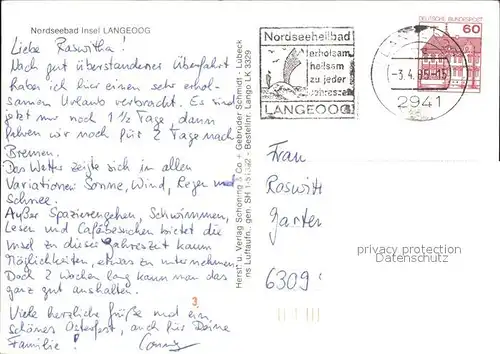 Nordseebad Insel LANGEOOG
Liebe Roswitha!
Nach gut überstandener Überfahrt
habe ich hier einen sehr erhol-
samen Urlaub verbracht. Es sind
jetzt nur noch 1 1/2 Tage, dann
fahren wir noch für 2 Tage nach
Bremen.
Das Wetter zeigte sich in allen
Variationen: Sonne, Wind, Regen und
Schnee.
Außer Spazierengehen, Schwimmen,
Lesen und Cafébesuchen bietet die
Insel zu dieser Jahreszeit kaum
Möglichkeiten, etwas zu unternehmen.
Doch 2 Wochen lang kann man das
ganz gut aushalten.
Viele herzliche Grüße und ein
schönes Osterfest, auch für Deine
Familie! Conny
3
Herst. u. Verlag Schöning & Co + Gebrüder Schmidt - Lübeck
ns Luftaufn. gen. SH 1-51/332 - Bestellnr. Lango LK 3329
Nordseeheilbad
erholsam
heilsam
zu jeder
Jahreszeit
LANGEOOG
DEUTSCHE BUNDESPOST
60
-3.4.85-15
2941
Frau
Roswith
Garten
6309
privacy protection
Datenschutz